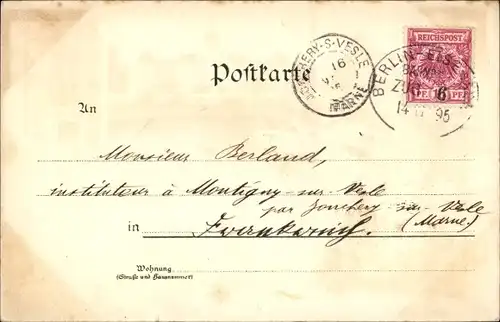 REICHSPOST
PF. PF.
JONCHERY-S-VESLE
16
MARNE
BERLIN
ZUG 16
14 95
Postkarte
An
Monsieur Berland,
instituteur à Montigny-sur-Vesle
par Jonchery-sur-Vesle
(Marne)
in Frankreich.
Wohnung
(Straße und Hausnummer)